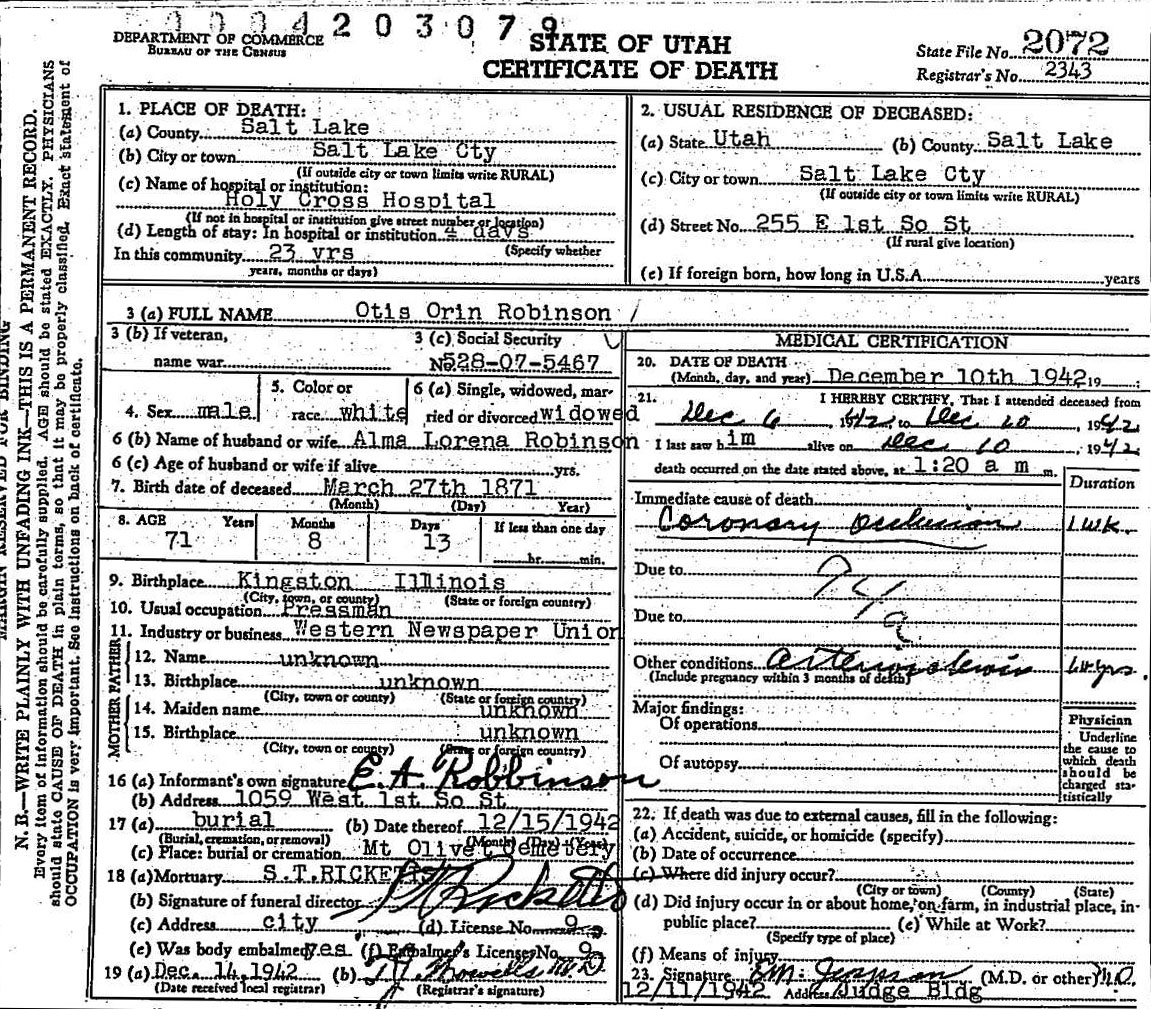 0004203079
DEPARTMENT OF COMMERCE
BUREAU OF THE CENSUS
STATE OF UTAH
CERTIFICATE OF DEATH
State File No. 2072
Registrar's No. 2343
MARGIN RESERVED FOR BINDING
N. B.—WRITE PLAINLY WITH UNFADING INK—THIS IS A PERMANENT RECORD.
Every item of information should be carefully supplied. AGE should be stated EXACTLY. PHYSICIANS
should state CAUSE OF DEATH in plain terms, so that it may be properly classified. Exact statement of
OCCUPATION is very important. See instructions on back of certificate.
1. PLACE OF DEATH:
(a) County Salt Lake
(b) City or town Salt Lake Cty
(If outside city or town limits write RURAL)
(c) Name of hospital or institution:
Holy Cross Hospital
(If not in hospital or institution give street number or location)
(d) Length of stay: In hospital or institution 4 days
(Specify whether
In this community 23 yrs
years, months or days)
2. USUAL RESIDENCE OF DECEASED:
(a) State Utah (b) County Salt Lake
(c) City or town Salt Lake Cty
(If outside city or town limits write RURAL)
(d) Street No. 255 E 1st So St
(If rural give location)
(e) If foreign born, how long in U.S.A. years
3 (a) FULL NAME Otis Orin Robinson
3 (b) If veteran,
name war
3 (c) Social Security
No. 528-07-5467
4. Sex male
5. Color or
race white
6 (a) Single, widowed, mar-
ried or divorced widowed
6 (b) Name of husband or wife Alma Lorena Robinson
6 (c) Age of husband or wife if alive yrs.
7. Birth date of deceased March 27th 1871
(Month) (Day) Year)
8. AGE Years Months Days If less than one day
71 8 13 hr. min.
9. Birthplace Kingston Illinois
(City, town, or county) (State or foreign country)
10. Usual occupation Pressman
11. Industry or business Western Newspaper Union
FATHER
12. Name unknown
13. Birthplace unknown
(City, town or county) (State or foreign country)
MOTHER
14. Maiden name unknown
15. Birthplace unknown
(City, town or county) (State or foreign country)
16 (a) Informant's own signature E. A. Robbinson
(b) Address 1059 West 1st So St
17 (a) burial (b) Date thereof 12/15/1942
(Burial, cremation, or removal) (Month) (Day) (Year)
(c) Place: burial or cremation Mt Olivet Cemetery
18 (a) Mortuary S.T.RICKETTS
(b) Signature of funeral director Ricketts
(c) Address city (d) License No. 9
(e) Was body embalmed yes (f) Embalmer's License No. 9
19 (a) Dec. 14, 1942 (b) M.D.
(Date received local registrar) (Registrar's signature)
MEDICAL CERTIFICATION
20. DATE OF DEATH
(Month, day, and year) December 10th 1942 19
21. I HEREBY CERTIFY, That I attended deceased from
Dec 6, 1942 to Dec 10, 1942
I last saw him alive on Dec 10, 1942
death occurred on the date stated above, at 1:20 a m m.
Duration
Immediate cause of death
Coronary occlusion 1 WK.
Due to
94a
Due to
Other conditions yrs.
(Include pregnancy within 3 months of death)
Major findings:
Of operations
Of autopsy
Physician
Underline
the cause to
which death
should be
charged sta-
tistically
22. If death was due to external causes, fill in the following:
(a) Accident, suicide, or homicide (specify)
(b) Date of occurrence
(c) Where did injury occur?
(City or town) (County) (State)
(d) Did injury occur in or about home, on farm, in industrial place, in-
public place? (e) While at Work?
(Specify type of place)
(f) Means of injury
23. Signature (M.D. or other) M.D.
12/11/1942 Address Judge Bldg